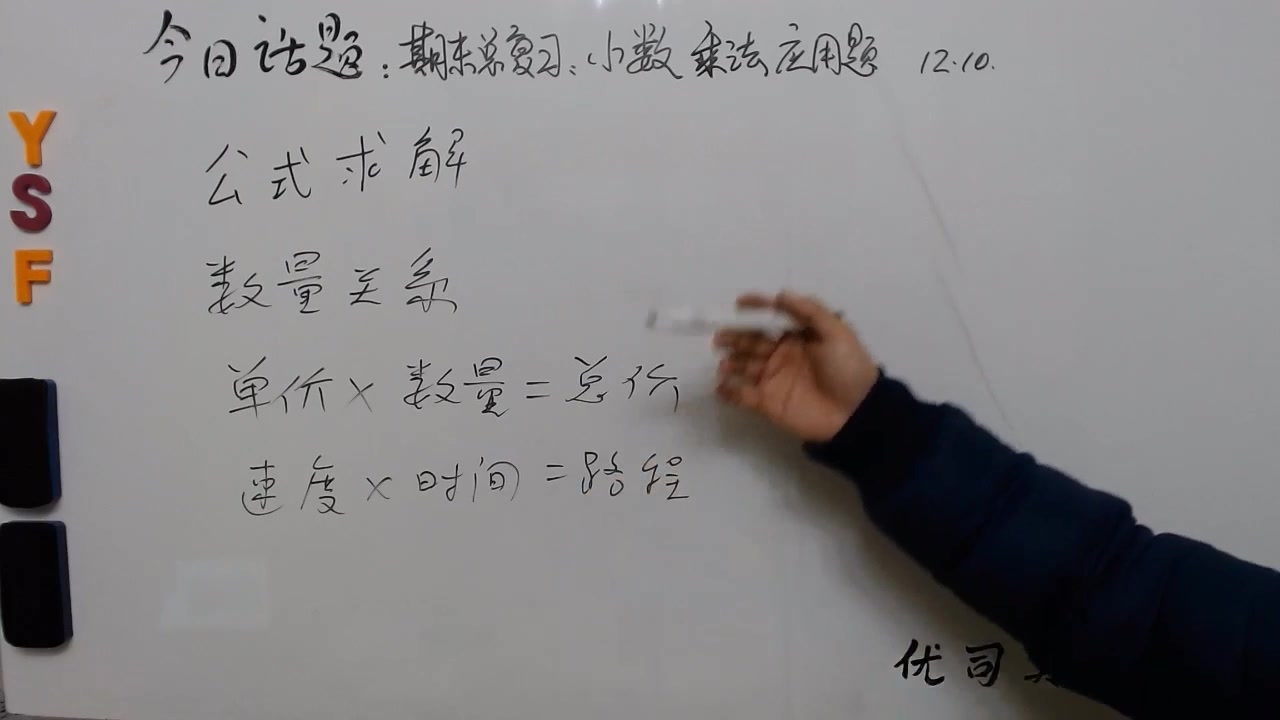 今日话题:期末总复习:小数乘法应用题 12.10.
Y
S
F
公式求解
数量关系
单价×数量=总价
速度×时间=路程
优司